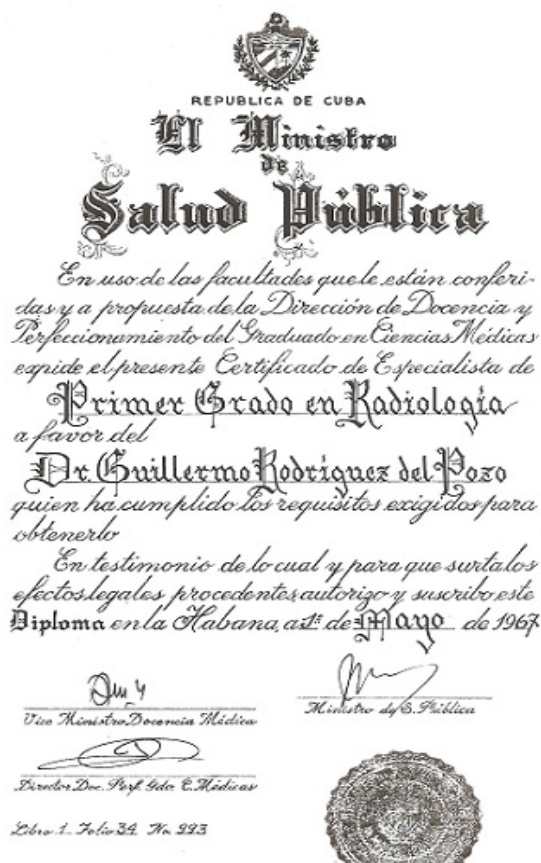 REPUBLICA DE CUBA
El Ministro
de
Salud Pública
En uso de las facultades que le están conferi-
das y a propuesta de la Dirección de Docencia y
Perfeccionamiento del Graduado en Ciencias Médicas
expide el presente Certificado de Especialista de
Primer Grado en Radiología
a favor del
Dr. Guillermo Rodríguez del Pozo
quien ha cumplido los requisitos exigidos para
obtenerlo
En testimonio de lo cual y para que surta los
efectos legales procedentes, autorizo y suscribo este
Diploma en la Habana, a 1º de Mayo de 1967
Vice Ministro Docencia Médica
Ministro de S. Pública
Director Doc. Perf. Gdo. C. Médicas
Libro 1 Folio 34 No. 993